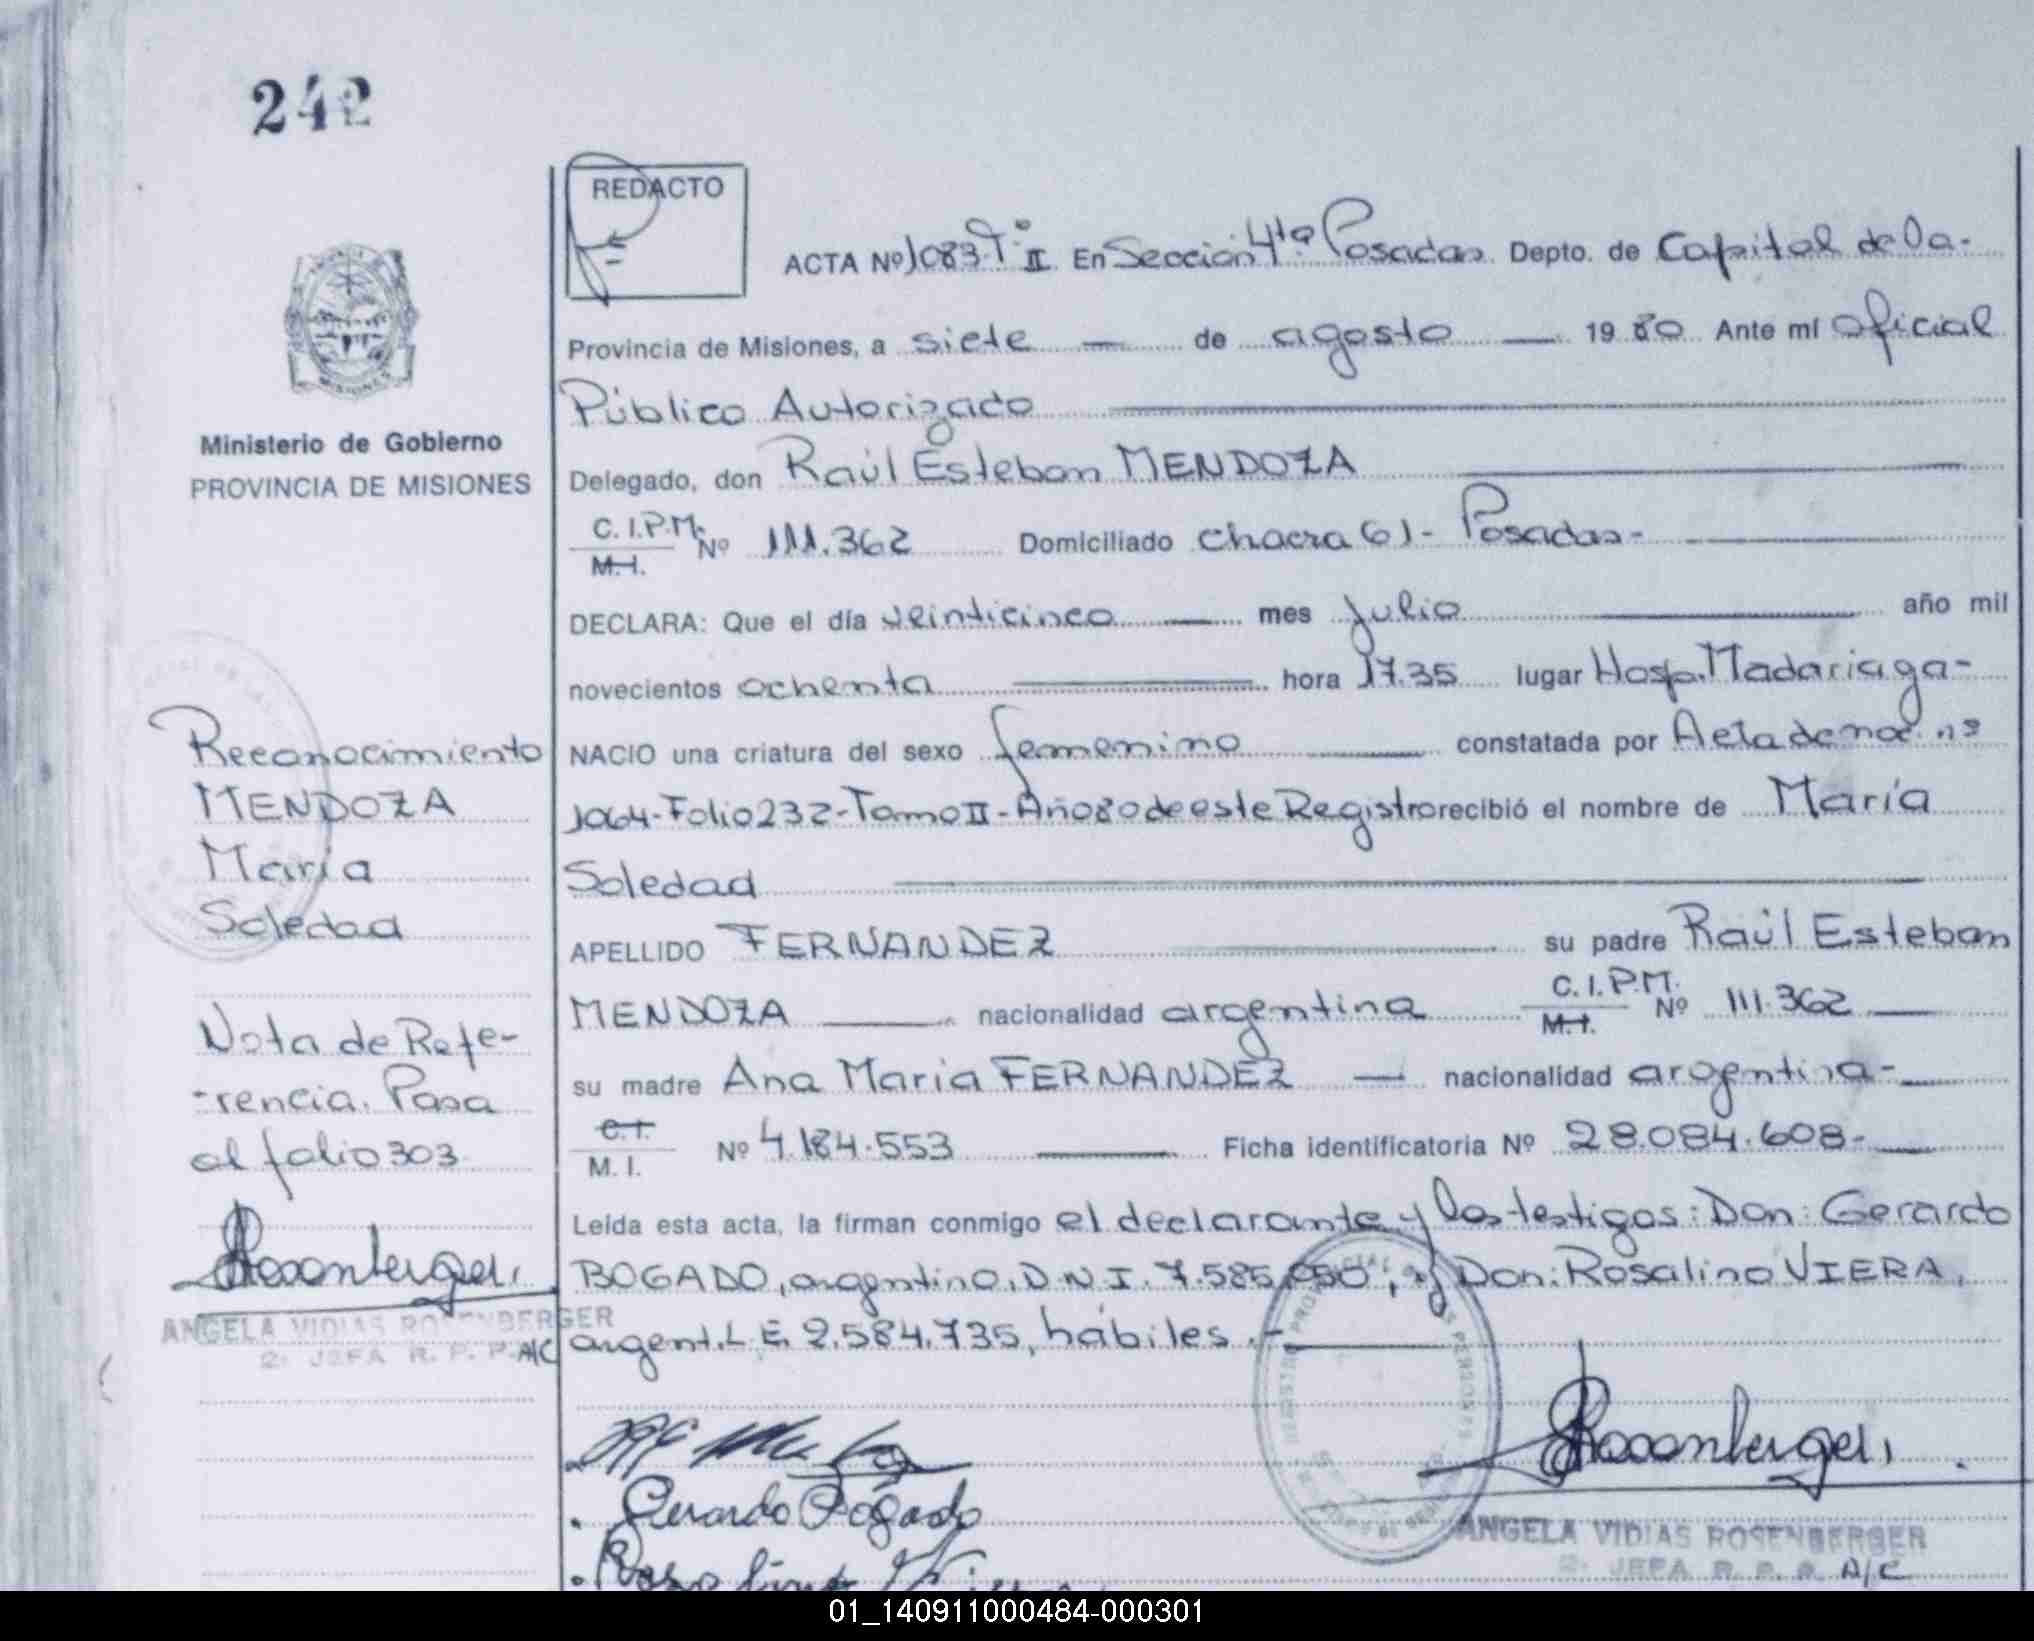 242
REDACTO
ACTA Nº 1083 Tº II En Sección 4ta. Posadas Depto. de Capital de la-
Provincia de Misiones, a siete — de agosto — 1980 Ante mí Oficial
Público Autorizado
Ministerio de Gobierno
PROVINCIA DE MISIONES
Delegado, don Raúl Esteban MENDOZA
C.I.P.M. Nº 111.362 Domiciliado Chacra 61- Posadas-
M.I.
DECLARA: Que el día veinticinco — mes julio — año mil
novecientos ochenta — hora 17.35 lugar Hosp. Madariaga-
NACIO una criatura del sexo femenino — constatada por Acta de nac. nº
1064-Folio 232-Tomo II-Año 80 de este Registro recibió el nombre de María
Soledad
APELLIDO FERNANDEZ — su padre Raúl Esteban
MENDOZA — nacionalidad argentina C.I.P.M. Nº 111.362 —
M.I.
su madre Ana María FERNANDEZ — nacionalidad argentina-
C.I.
M.I. Nº 4.184.553 — Ficha identificatoria Nº 28.084.608-
Leída esta acta, la firman conmigo el declarante y los testigos: Don: Gerardo
BOGADO, argentino, D.N.I. 7.585.050, y Don: Rosalino VIERA,
argent. L.E. 2.584.735, hábiles.-
Reconocimiento
MENDOZA
María
Soledad
Nota de Refe-
-rencia. Pasa
al folio 303
Rosenberger
ANGELA VIDIAS ROSENBERGER
2: JEFA R. P. P. A/C
Gerardo Bogado
Rosenberger
ANGELA VIDIAS ROSENBERGER
2: JEFA R. P. P. A/C
01_140911000484-000301